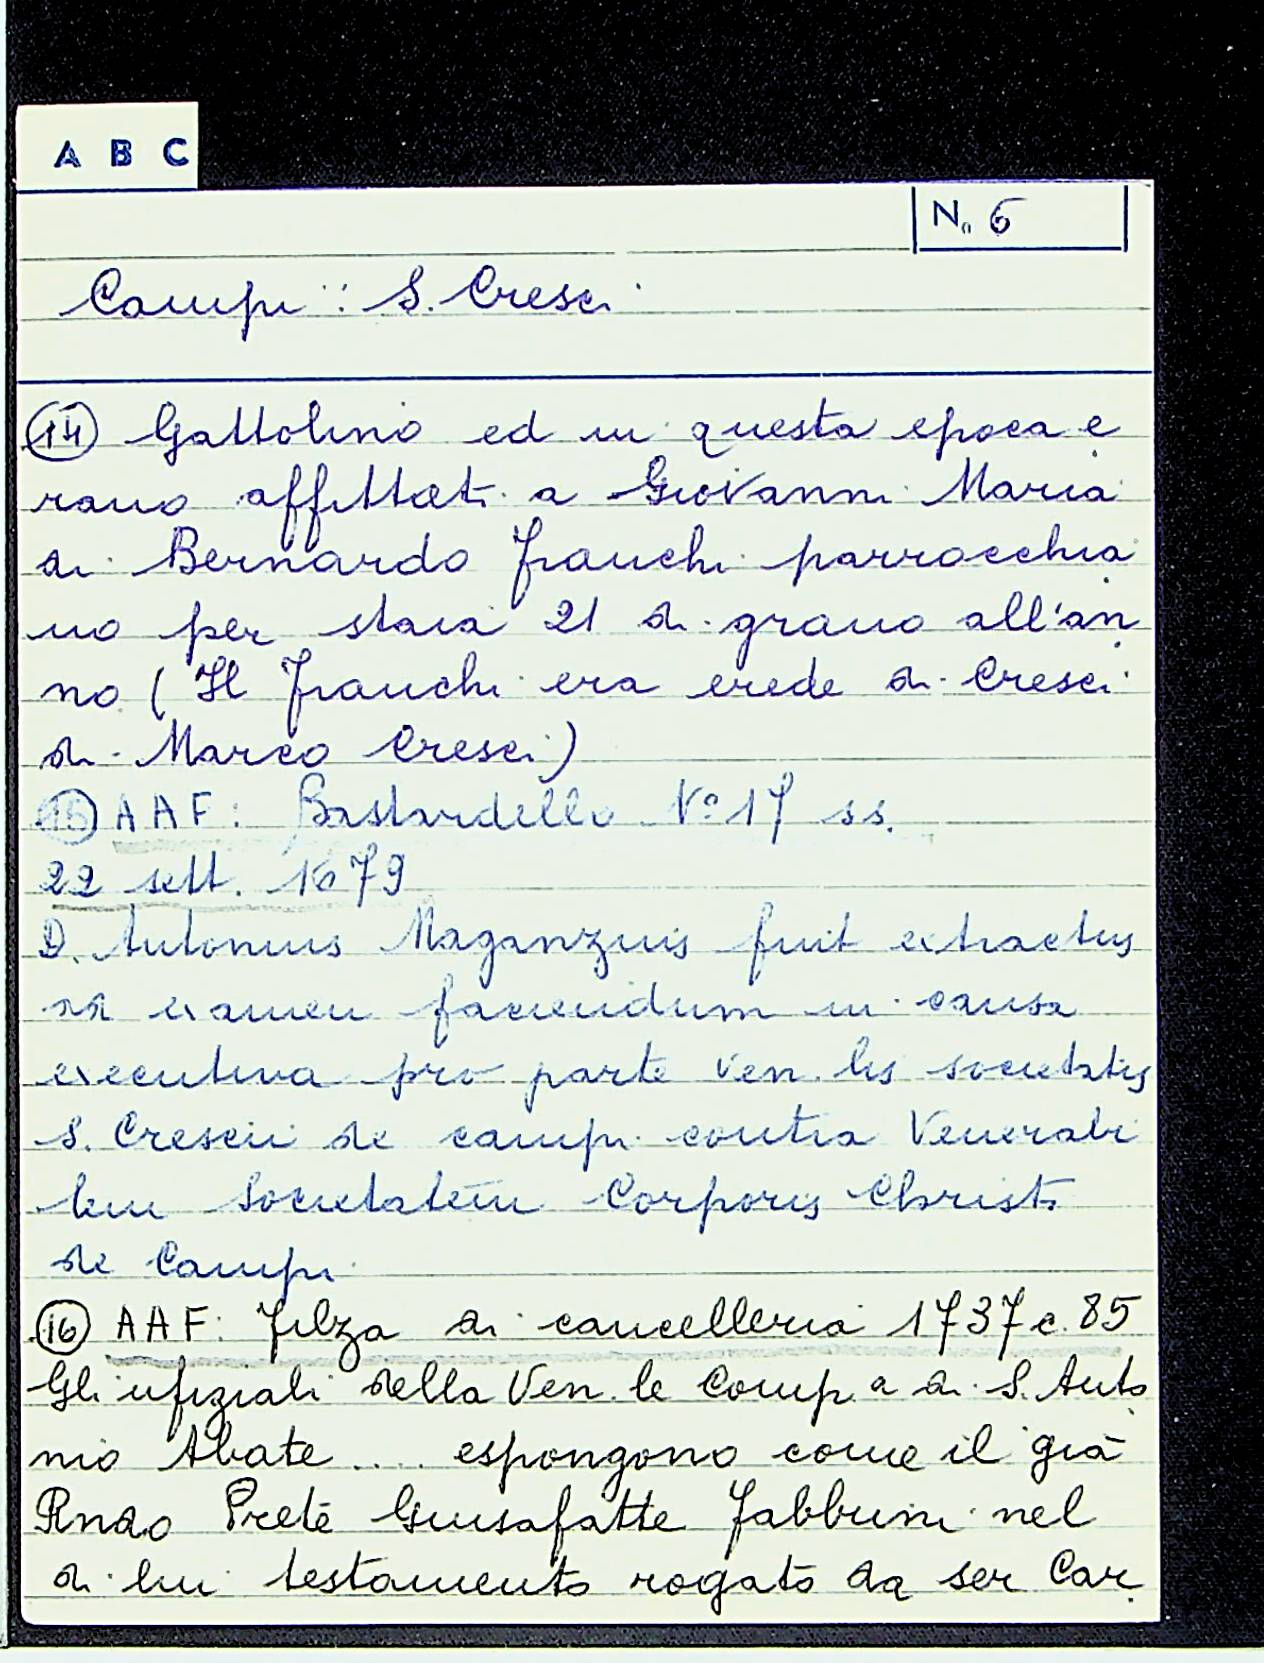 A B C
N. 6
Campi: S. Cresci
14 Gattolino ed in questa epoca e
rano affittati a Giovanni Maria
di Bernardo Franchi parrocchia
no per staia 21 di grano all'an
no (Il Franchi era erede di Cresci
di Marco Cresci)
15 AAF: Bastardello N° 17 ss.
22 sett. 1679
D. Antonius Maganzius fuit extractus
ad examen faciendum in causa
executiva pro parte Ven.lis societatis
S. Crescii de campi contra Venerabi
lem Societatem Corporis Christi
de Campi
16 AAF: Filza di cancelleria 1737 c. 85
Gli ufiziali della Ven.le Comp.a di S. Anto
nio Abate .... espongono come il già
Rndo Prete Giusafatte Fabbrini nel
di lui testamento rogato da ser Car